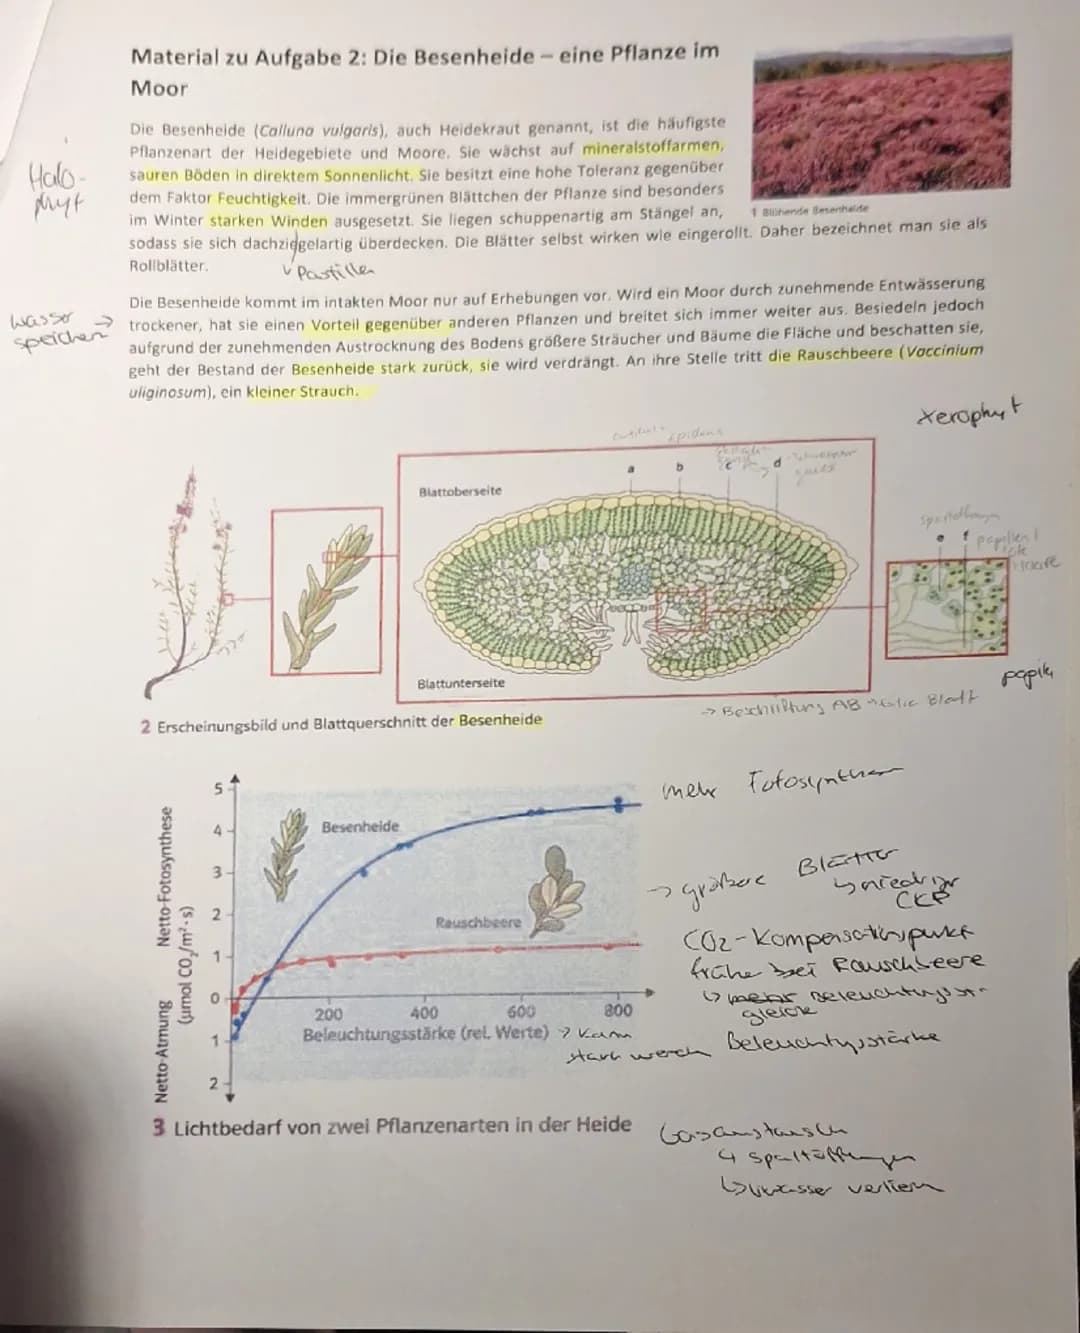 Material zu Aufgabe 2: Die Besenheide – eine Pflanze im
Moor
Die Besenheide (Calluna vulgaris), auch Heidekraut genannt, ist die häufigste
Pflanzenart der Heidegebiete und Moore. Sie wächst auf mineralstoffarmen,
sauren Böden in direktem Sonnenlicht. Sie besitzt eine hohe Toleranz gegenüber
dem Faktor Feuchtigkeit. Die immergrünen Blättchen der Pflanze sind besonders
im Winter starken Winden ausgesetzt. Sie liegen schuppenartig am Stängel an,
sodass sie sich dachziegelartig überdecken. Die Blätter selbst wirken wie eingerollt. Daher bezeichnet man sie als
Rollblätter.
1 Blühende Besenheide
Halo-
phyt
↓ Pastillen
Die Besenheide kommt im intakten Moor nur auf Erhebungen vor. Wird ein Moor durch zunehmende Entwässerung
trockener, hat sie einen Vorteil gegenüber anderen Pflanzen und breitet sich immer weiter aus. Besiedeln jedoch
aufgrund der zunehmenden Austrocknung des Bodens größere Sträucher und Bäume die Fläche und beschatten sie,
geht der Bestand der Besenheide stark zurück, sie wird verdrängt. An ihre Stelle tritt die Rauschbeere (Vaccinium
uliginosum), ein kleiner Strauch.
wasser →
speichen
Xerophyt
epidermis
a b c d
Blattoberseite
e f
Haare
Blattunterseite
→ Beschriftung AB Blatt
2 Erscheinungsbild und Blattquerschnitt der Besenheide
mehr Fotosynthese
Netto-Fotosynthese
Netto-Atmung
(µmol CO₂/m²·s)
5
4
3
2
1
0
1
2
Besenheide
Rauschbeere
200 400 600 800
Beleuchtungsstärke (rel. Werte)
→ kann
stark werden
3 Lichtbedarf von zwei Pflanzenarten in der Heide
→ größere Blätter
↳ niedriger
CKP
CO2-Kompensationspunkt
frühe bei Rauschbeere
gleiche
Beleuchtungsstärke
Gasaustausch
↳ Spaltöffnungen
↳ wasser verlieren